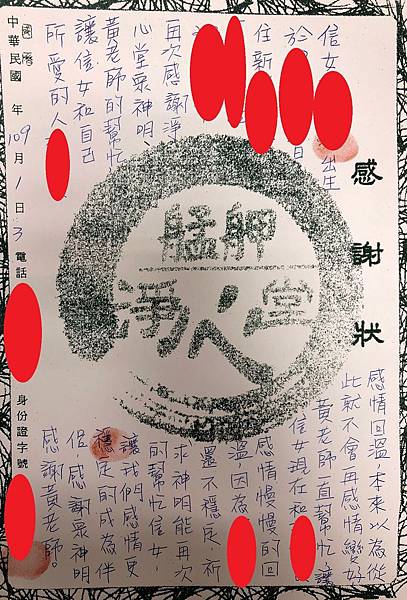 感謝狀
信女出生
於 日
住新
再次感謝淨
心堂眾神明、
黃老師的幫忙
讓信女和自己
所愛的人
感情回溫,本來以為從
此就不會再感情變好
黃老師一直幫忙讓
信女現在和
感情慢慢的回
溫,因為
還不穩定,祈
求神明能再次
的幫忙信女,
讓我們感情更
穩定的成為伴
侶,感謝眾神明
感謝黃老師。
艋舺
淨心堂
中華民國 年109月1日3 電話 身份證字號